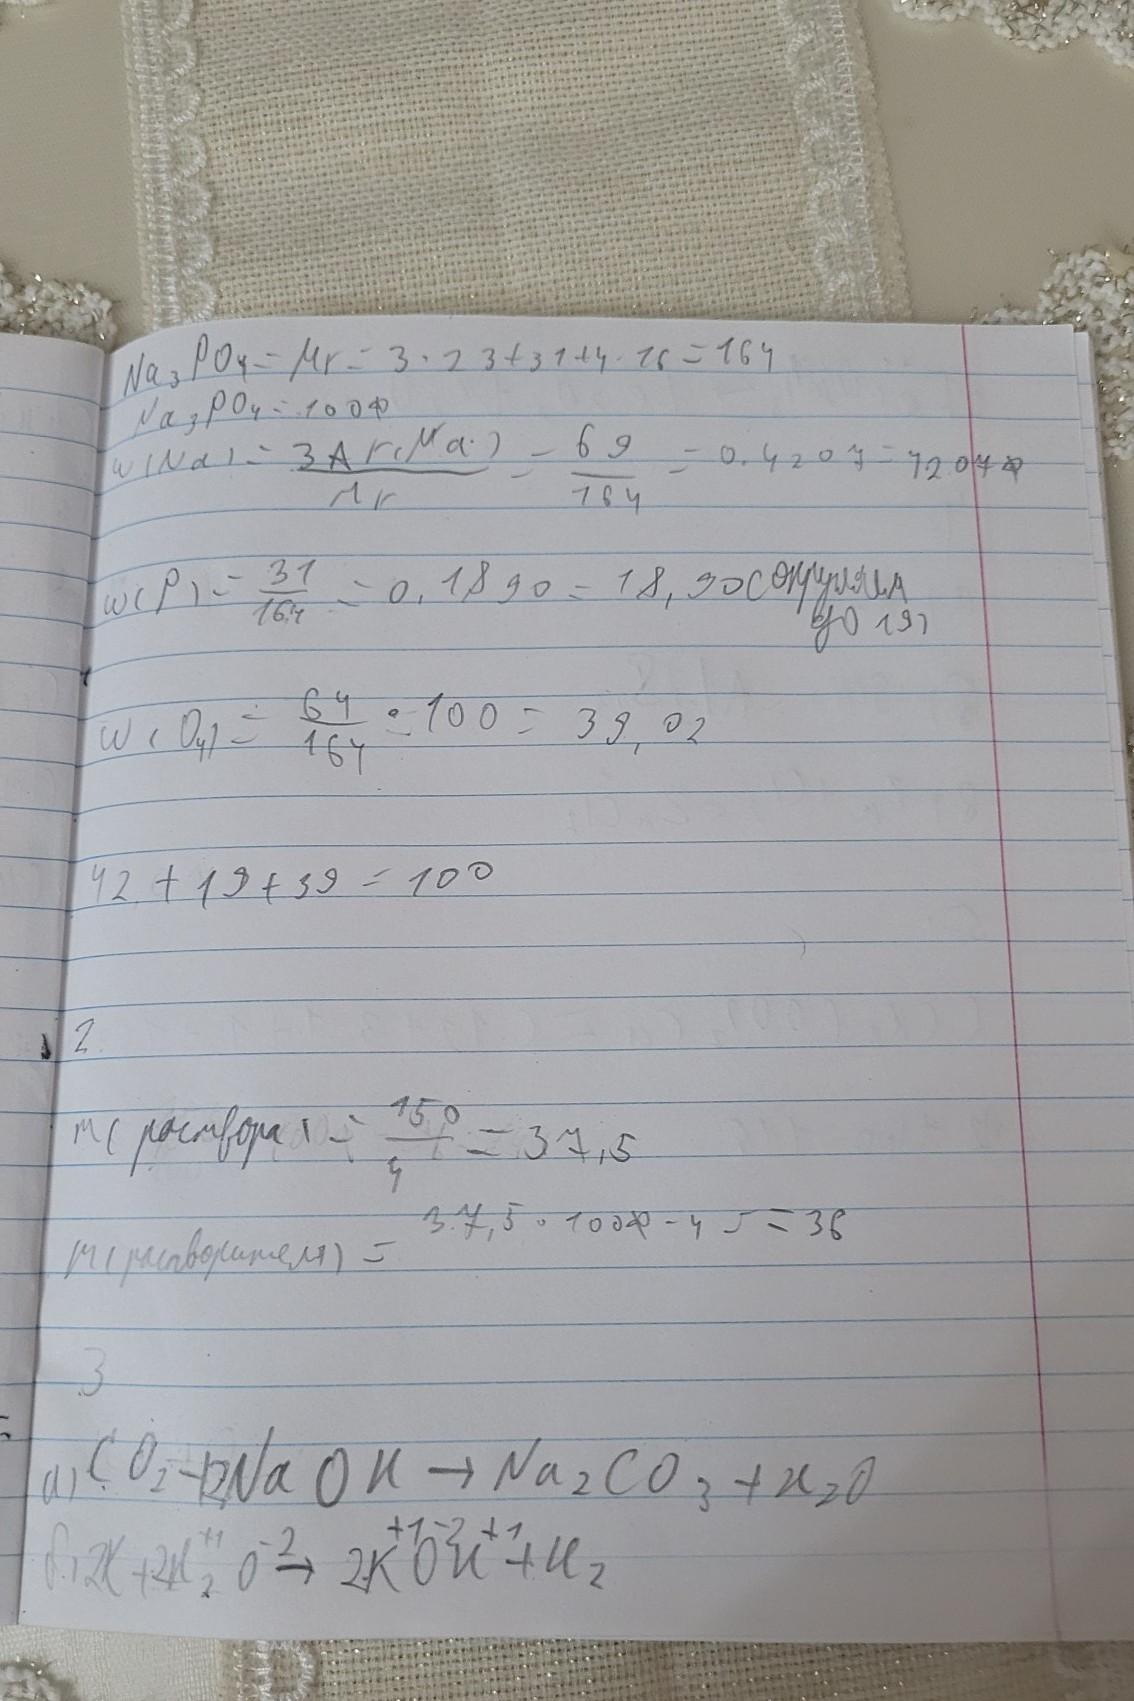 Na₃PO₄ = Mr = 3 · 23 + 31 + 4 · 16 = 164
Na₃PO₄ = 100%
w(Na) = 3Ar(Na) / Mr = 69 / 164 = 0.4207 = 42.07%
w(P) = 31 / 164 = 0,1890 = 18,90 (округлили
до 19)
w(O₄) = 64 / 164 · 100 = 39,02
42 + 19 + 39 = 100
2.
m(раствора) = 150 / 4 = 37,5
m(растворителя) = 37,5 · 100% - 1,5 = 36
3
а) CO₂ + 2NaOH → Na₂CO₃ + H₂O
б) 2K + 2H₂⁺¹O⁻² → 2K⁺¹O⁻²H⁺¹ + H₂